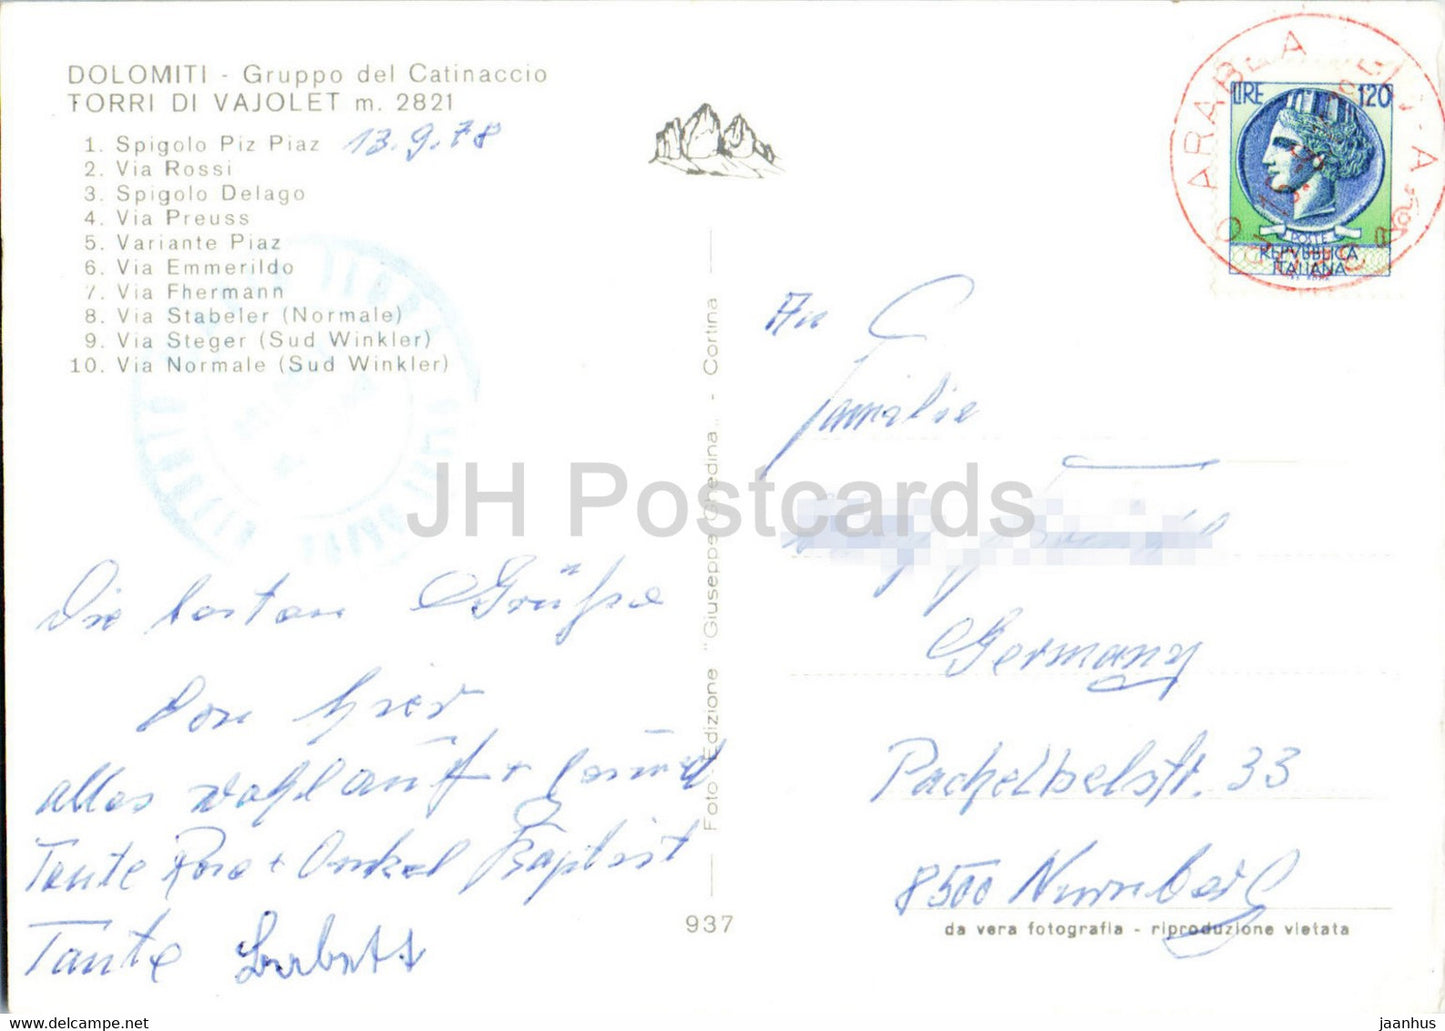 DOLOMITI - Gruppo del Catinaccio
TORRI DI VAJOLET m. 2821
1. Spigolo Piz Piaz 13.9.78
2. Via Rossi
3. Spigolo Delago
4. Via Preuss
5. Variante Piaz
6. Via Emmerildo
7. Via Fhermann
8. Via Stabeler (Normale)
9. Via Steger (Sud Winkler)
10. Via Normale (Sud Winkler)
Die besten Grüße
von hier
alles wohlauf + gesund
Tante Rosa + Onkel Baptist
Tante Babett
Foto - Edizione "Giuseppe Ghedina" - Cortina
937
ARABBA
LIRE 120
POSTE
REPVBBLICA
ITALIANA
An
Familie
Germany
Pachelbelstr. 33
8500 Nürnberg
da vera fotografia - riproduzione vietata
JH Postcards
jaanhus - HipPostcard.com